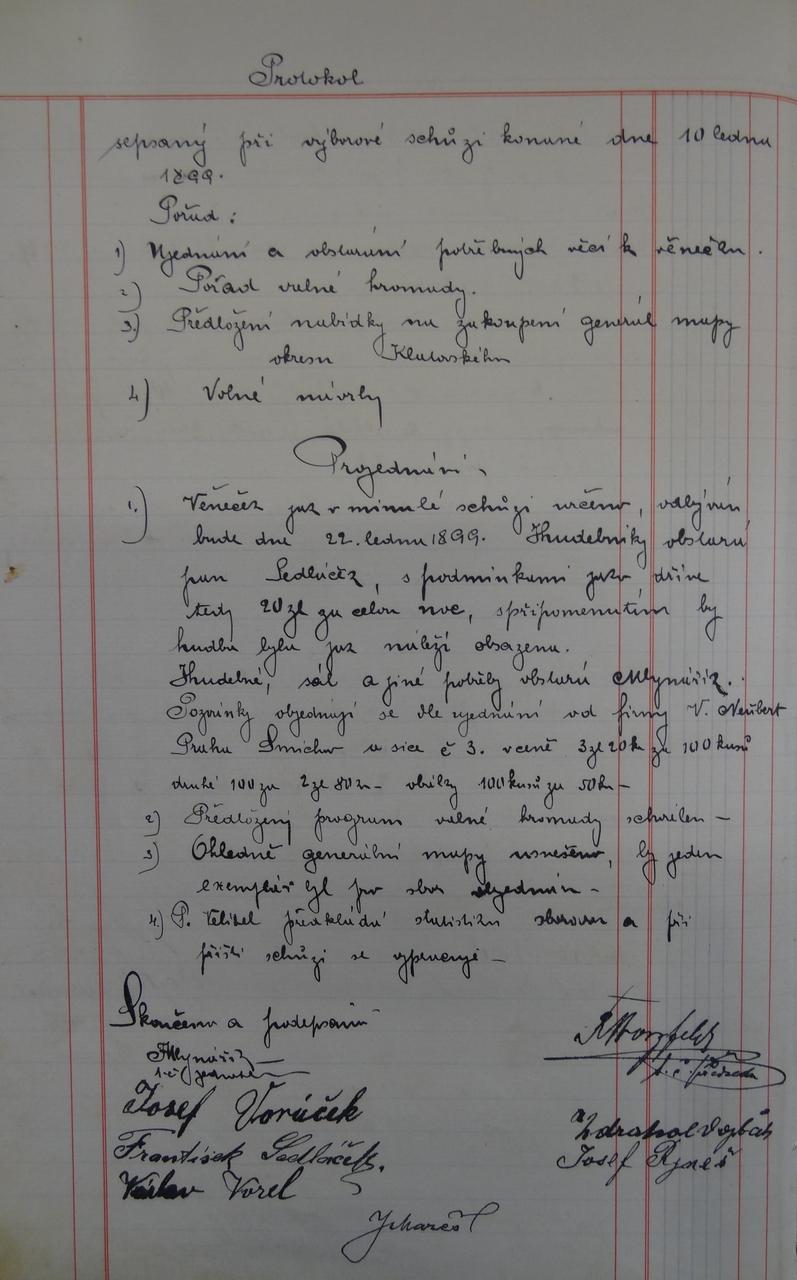 Protokol
sepsaný při výborové schůzi konané dne 10 ledna
1899.
Pořad :
1) Ujednání a obstarání potřebných věcí k věnečku .
2) Pořad valné hromady.
3.) Předložení nabídky na zakoupení generál mapy
okresu Klatovského
4) Volné návrhy
Projednání.
1.) Věneček jak v minulé schůzi určeno, odbýván
bude dne 22. ledna 1899. Hudebníky obstará
pan Sedláček, s podmínkami jako dříve
tedy 20 zl za celou noc, s připomenutím by
hudba byla jak náleží obsazena.
Hudebné, sál a jiné potřeby obstará Mlynařík.
Pozvánky objednají se dle ujednání od firmy V. Neubert
Praha Smíchov a sice č 3. v ceně 3 zl 20 k za 100 kusů
druhé 100 za 2 zl 80 k – obálky 100 kusů za 50 k –
2) Předložený program valné hromady schválen –
3) Ohledně generální mapy usneseno, by jeden
exemplář byl pro sbor objednán –
4.) P. Velitel předkládá statistiku sborovou a při
příští schůzi se vyplní –
Skončeno a podepsáno
FMlynařík
t. č. jednatel
t. č. předseda
Josef Voráček
Zdrahal Vojtěch
František Sedláček.
Josef
Václav Vorel